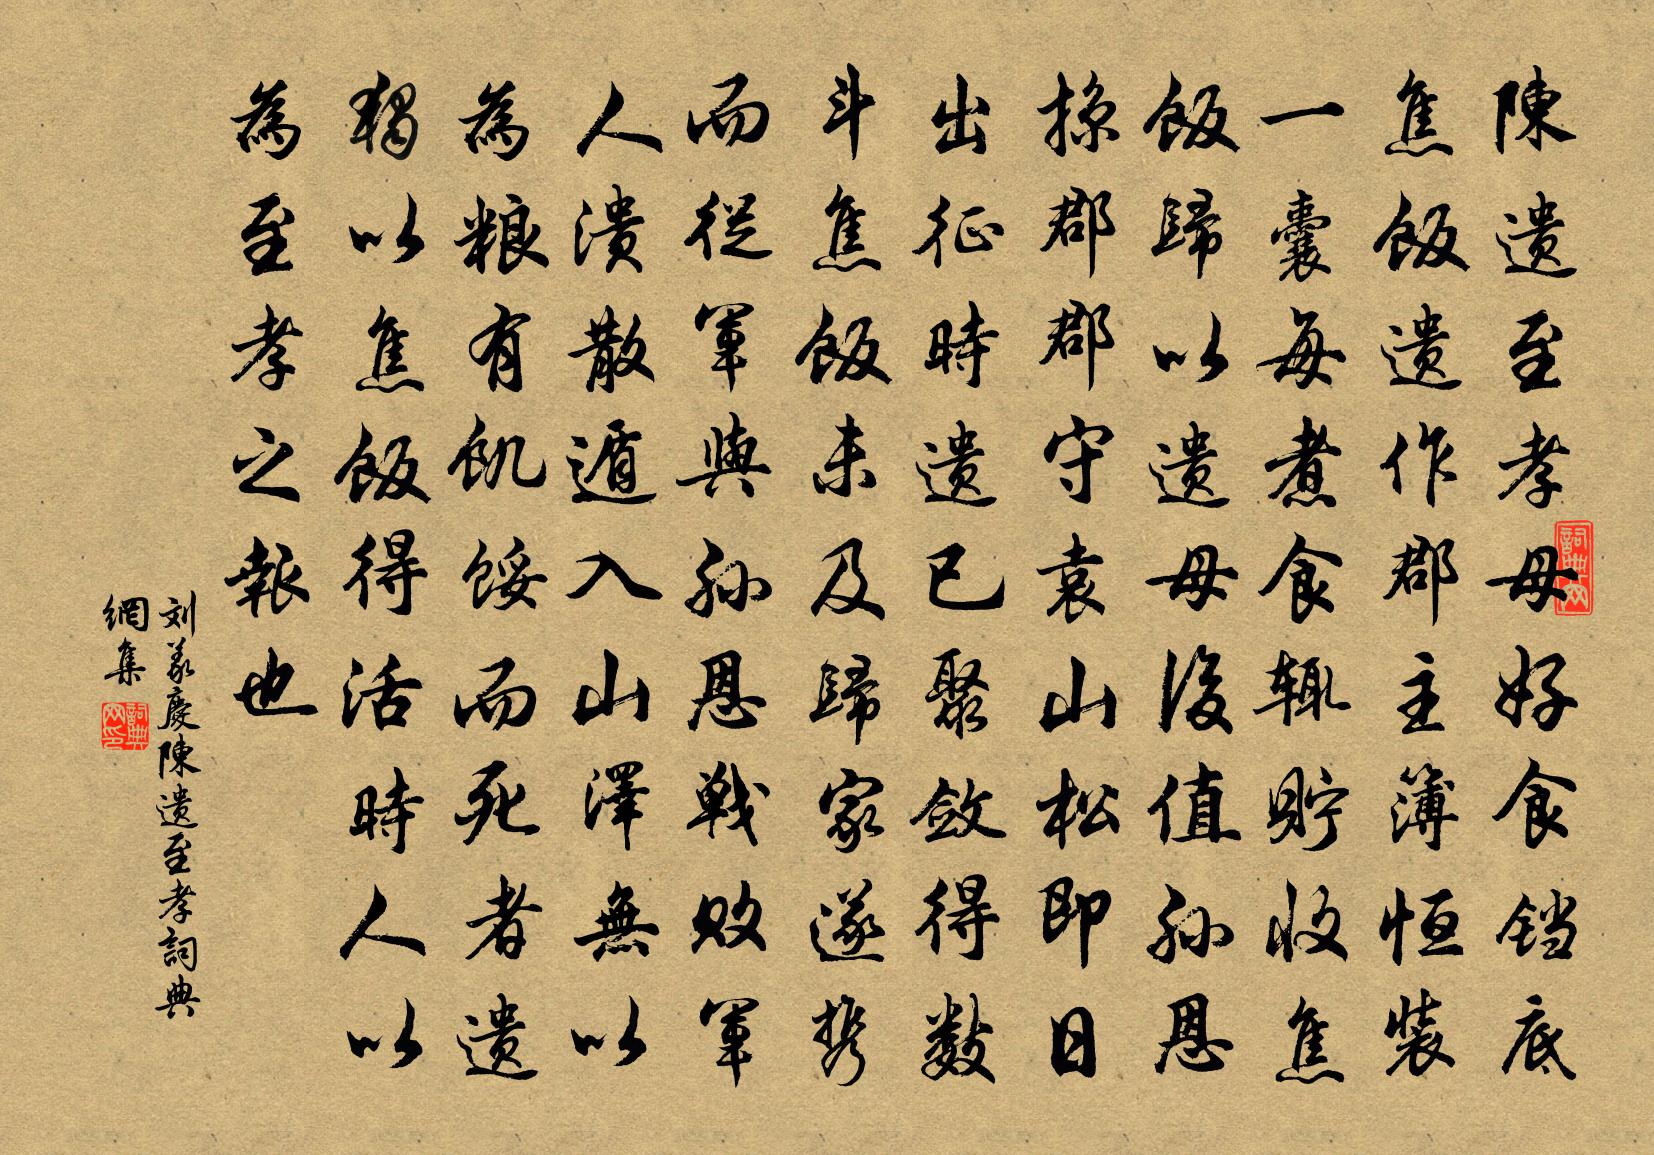 陳遗至孝母好食铛底
焦飯遗作郡主簿恒裝
一囊每煮食辄貯收焦
飯歸以遗母後值孙恩
掠郡郡守袁山松即日
出征時遗已聚敛得数
斗焦飯未及歸家遂携
而從軍與孙恩戦败軍
人溃散遁入山澤無以
為粮有飢馁而死者遗
獨以焦飯得活時人以
為至孝之報也
刘義慶陳遗至孝詞典
網集
詞典网
詞典网印